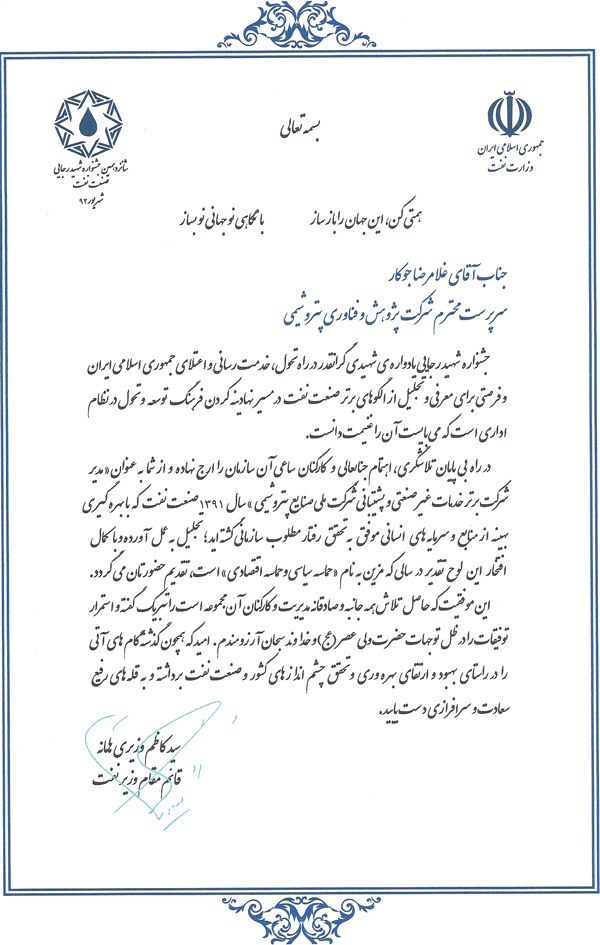 بسمه تعالی
جمهوری اسلامی ایران
وزارت نفت
شانزدهمین جشنواره شهید رجایی
صنعت نفت
شهریور ۹۲
همتی کن، این جهان را باز ساز با نگاهی نو جهانی نو بساز
جناب آقای غلامرضا جوکار
سرپرست محترم شرکت پژوهش و فناوری پتروشیمی
جشنواره شهید رجایی یادواره ی شهیدی گرانقدر در راه تحول، خدمت رسانی و اعتلای جمهوری اسلامی ایران
و فرصتی برای معرفی و تجلیل از الگوهای برتر صنعت نفت در مسیر نهادینه کردن فرهنگ توسعه و تحول در نظام
اداری است که می بایست آن را غنیمت دانست.
در راه بی پایان تلاشگری، اهتمام جنابعالی و کارکنان ساعی آن سازمان را ارج نهاده و از شما به عنوان «مدیر
شرکت برتر خدمات غیر صنعتی و پشتیبانی شرکت ملی صنایع پتروشیمی» سال ۱۳۹۱ صنعت نفت که با بهره گیری
بهینه از منابع و سرمایه های انسانی موفق به تحقق رفتار مطلوب سازمانی گشته اید؛ تجلیل به عمل آورده و با کمال
افتخار این لوح تقدیر در سالی که مزین به نام «حماسه سیاسی و حماسه اقتصادی» است، تقدیم حضورتان می گردد.
این موفقیت که حاصل تلاش همه جانبه و صادقانه مدیریت و کارکنان آن مجموعه است را تبریک گفته و استمرار
توفیقات را در ظل توجهات حضرت ولی عصر (عج) و خداوند سبحان آرزومندم. امید که همچون گذشته گام های آتی
را در راستای بهبود و ارتقای بهره وری و تحقق چشم اندازهای کشور و صنعت نفت برداشته و به قله های رفیع
سعادت و سرافرازی دست یابید.
سید کاظم وزیری هامانه
قائم مقام وزیر نفت